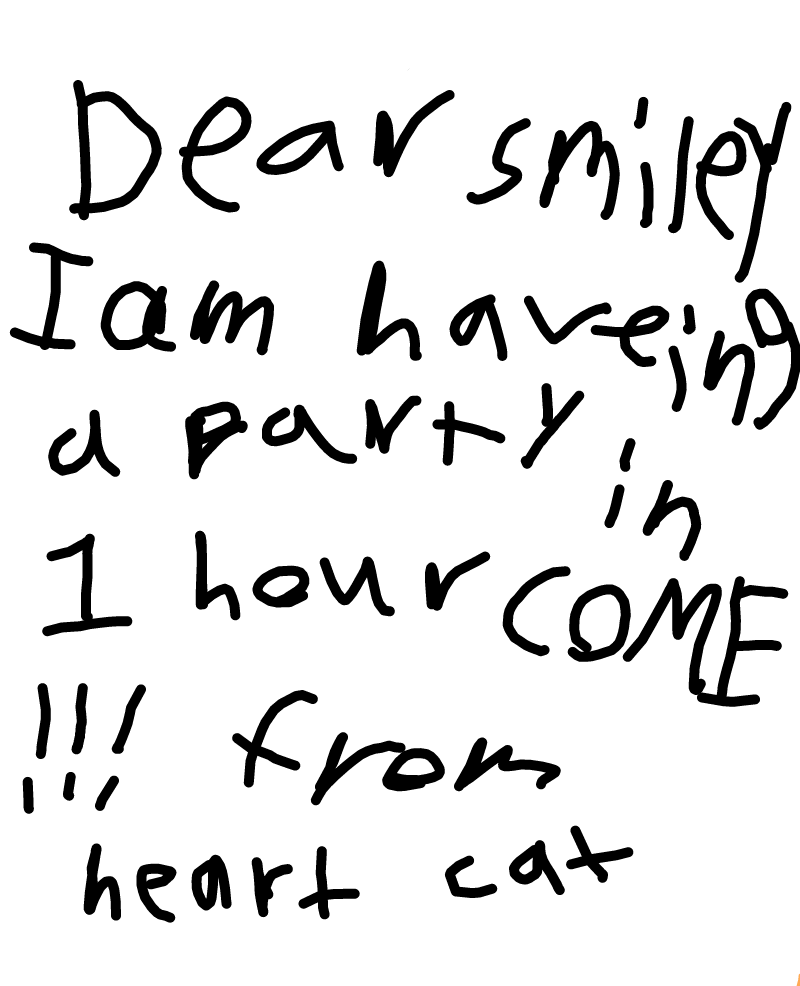 Dear smiley
I am haveing
a party in
1 hour COME
!!! from
heart cat